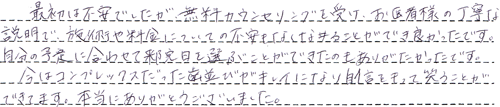 最初は不安でしたが、無料カウンセリングを受け、お医者様の丁寧な
説明で、施術や料金についての不安もなくなることができ良かったです。
自分の予定に合わせて都定日を選ぶことができたのもありがたかったです。
今はコンプレックスだった歯並びがキレイになり自信をもって笑うことが
できてます。本当にありがとうございました。